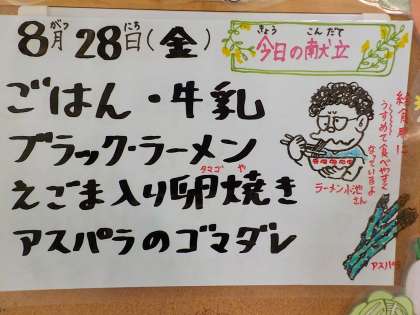 8月28日(金)
がつ にち
きょう こんだて
今日の献立
ごはん・牛乳
ブラック・ラーメン
えごま入り卵焼き
タマゴ や
アスパラのゴマダレ
給食用に
うすめて食べやすく
なっていますよ
ラーメン小池
さん
アスパラ